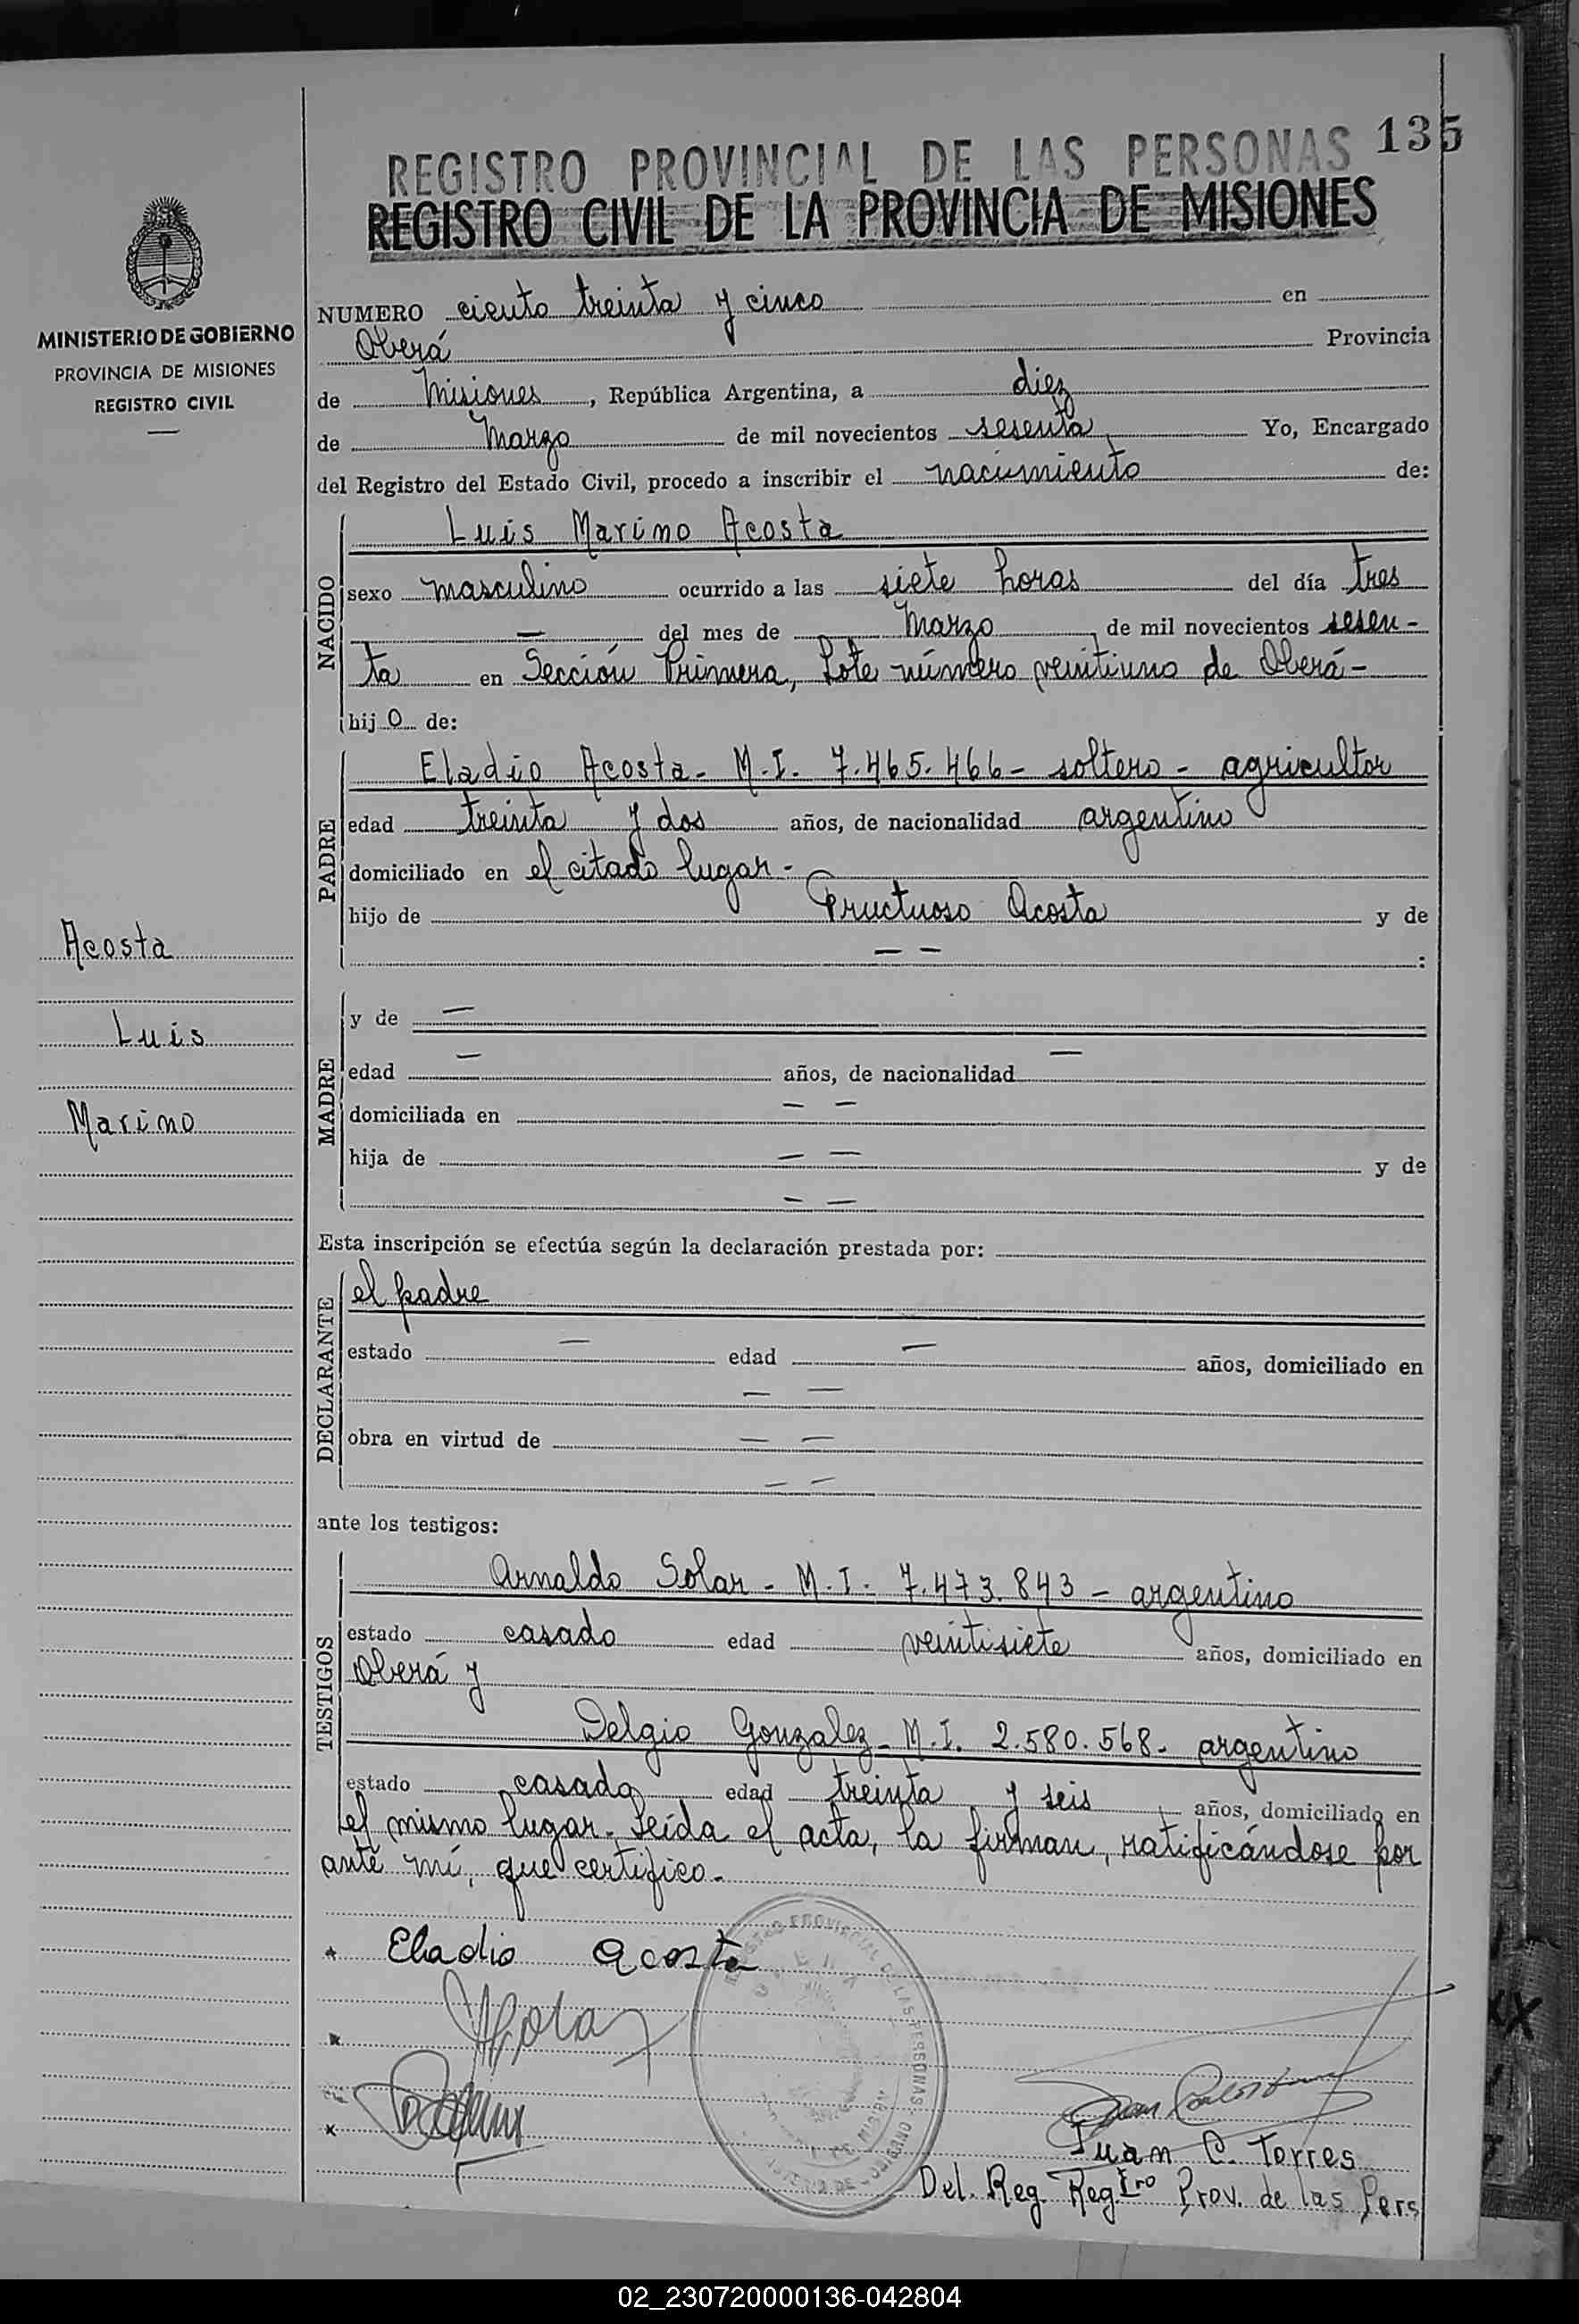 135
REGISTRO PROVINCIAL DE LAS PERSONAS
REGISTRO CIVIL DE LA PROVINCIA DE MISIONES
MINISTERIO DE GOBIERNO
PROVINCIA DE MISIONES
REGISTRO CIVIL
NUMERO ciento treinta y cinco en
Oberá Provincia
de Misiones, República Argentina, a diez
de Marzo de mil novecientos sesenta, Yo, Encargado
del Registro del Estado Civil, procedo a inscribir el nacimiento de:
NACIDO
Luis Marino Acosta
sexo masculino ocurrido a las siete horas del día tres
— del mes de Marzo, de mil novecientos sesen-
ta en Sección Primera, Lote número veintiuno de Oberá-
hijo de:
PADRE
Eladio Acosta- M.I. 7.465.466- soltero- agricultor
edad treinta y dos años, de nacionalidad argentino
domiciliado en el citado lugar-
hijo de Fructuoso Acosta y de
— — :
Acosta
Luis
Marino
MADRE
y de —
edad — años, de nacionalidad —
domiciliada en — —
hija de — — y de
— —
Esta inscripción se efectúa según la declaración prestada por:
DECLARANTE
el padre
estado — edad — años, domiciliado en
— —
obra en virtud de — —
— —
ante los testigos:
TESTIGOS
Arnaldo Solar- M.I. 7.473.843- argentino
estado casado edad veintisiete años, domiciliado en
Oberá y
Delgio Gonzalez- M.I. 2.580.568- argentino
estado casado edad treinta y seis años, domiciliado en
el mismo lugar. Leída el acta, la firman, ratificándose por
ante mí, que certifico.-
Eladio Acosta
Juan C. Torres
Del. Reg. Regtro Prov. de las Pers
02_230720000136-042804